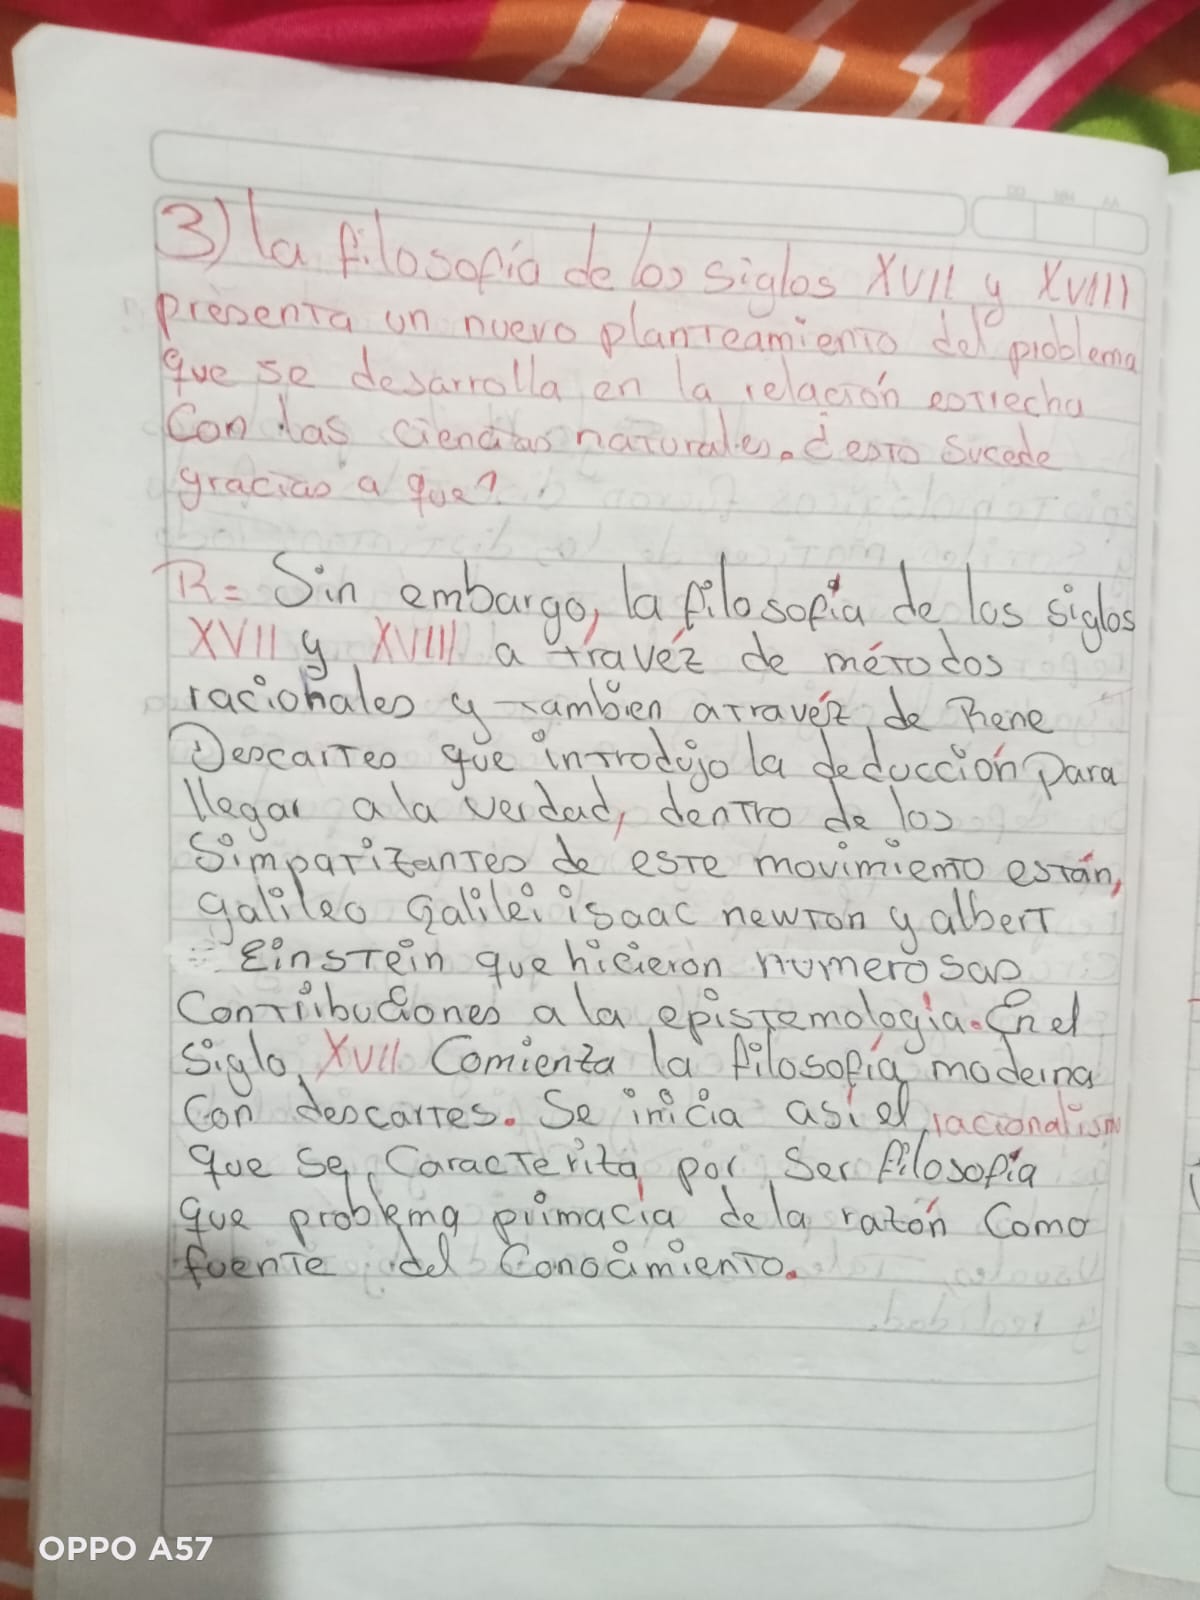 3) la filosofía de los siglos XVII y XVIII
presenta un nuevo planteamiento del problema
que se desarrolla en la relación estrecha
con las ciencias naturales. ¿esto sucede
gracias a que?
R= Sin embargo, la filosofía de los siglos
XVII y XVIII a travéz de métodos
racionales y tambien atravéz de Rene
Descartes que introdujo la deducción para
llegar a la verdad, dentro de los
Simpatizantes de este movimiento están,
galileo Galilei isaac newton y albert
Einstein que hicieron numerosas
Contribuciones a la epistemología. En el
siglo XVII Comienza la filosofía moderna
Con descartes. Se inicia así el racionalism
que se Caracteriza por Ser filosofía
que problema primacía de la razón Como
fuente del Conocimiento.
OPPO A57